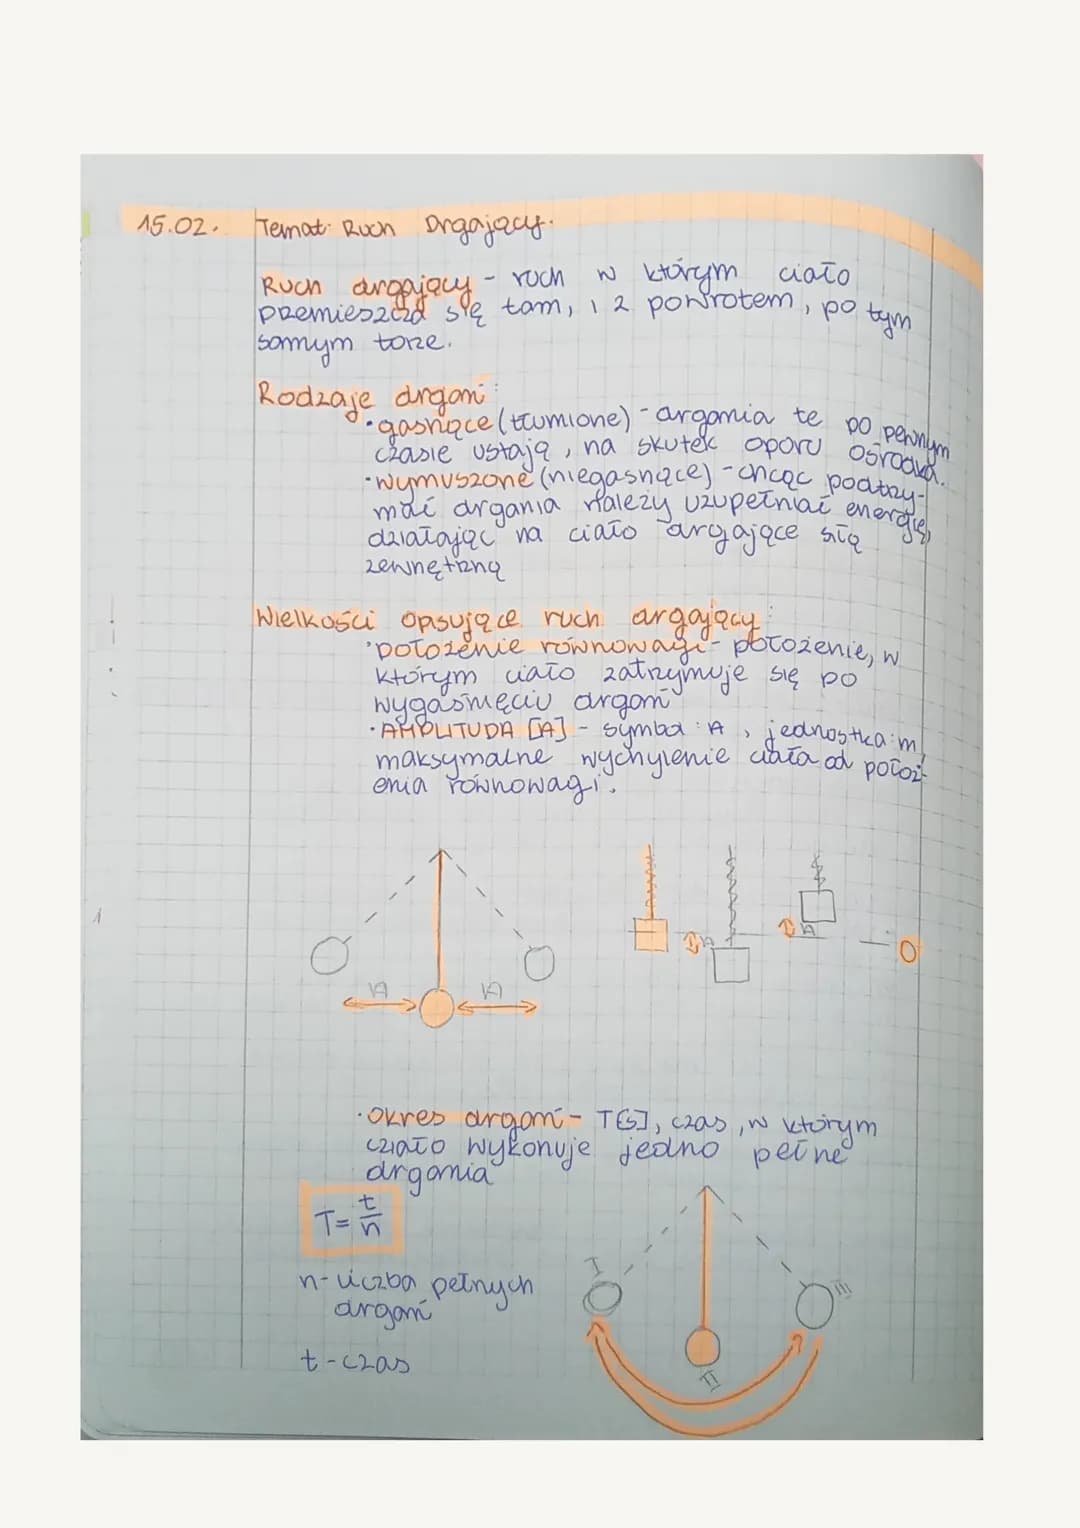 15.02. Temat: Ruch Drgający.
Ruch drgający - ruch w którym ciało
przemieszcza się tam, i z powrotem, po tym
samym torze.
Rodzaje drgań:
•gasnące (tłumione) - drgania te po pewnym
czasie ustają, na skutek oporu ośrodka.
•wymuszone (niegasnące) - chcąc podtrzy-
mać drgania należy uzupełniać energię,
działając na ciało drgające siłą
zewnętrzną
Wielkości opisujące ruch drgający:
•położenie równowagi - położenie, w
którym ciało zatrzymuje się po
wygaśnięciu drgań
•AMPLITUDA [A] - symbol: A, jednostka: m,
maksymalne wychylenie ciała od położ-
enia równowagi.
A A
A A 0
•Okres drgań - T[s], czas, w którym
ciało wykonuje jedno pełne
drgania
T= t/n
n - liczba pełnych
drgań
t - czas
I II III